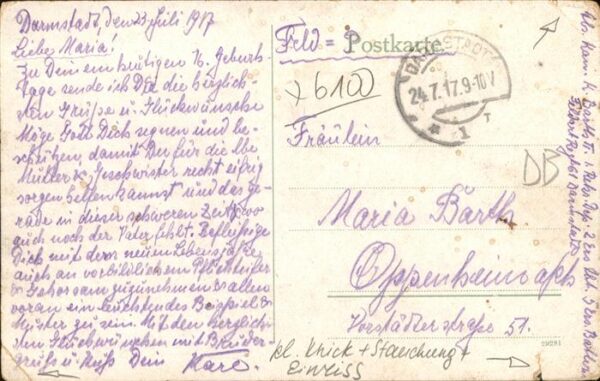 Darmstadt, den 23 Juli 1917
Liebe Maria!
Zu Deinem heutigen 16. Geburts-
tage sende ich Dir die herzlich-
sten Grüße u. Glückwünsche
Möge Gott Dich segnen und be-
schützen, damit Du für die lbe
Mutter & Geschwister recht eifrig
sorgen helfen kannst und das ge-
rade in dieser schweren Zeit, wo
auch noch der Vater fehlt. Befleißige
Dich mit dem neuen Lebensjahre
auch an vorbildlichem Pflichteifer
& Gehorsam zuzunehmen & allen
voran ein leuchtendes Beispiel &
Muster zu sein. Mit den herzlich-
sten Glückwünschen mit Bruder-
gruß u. Kuß Dein Karl
Feld = Postkarte
DARMSTADT
24.7.17.9-10V
* 1 *
6100
Fräulein
DB
Maria Barth
Oppenheim a/Rh
Vorstädterstraße 51.
kl. Knick + Stauchung +
Einriss
Abs. Kan. K. Barth II. 1 Rekr. Dep. 2 Ers. Abt.
Darmstadt